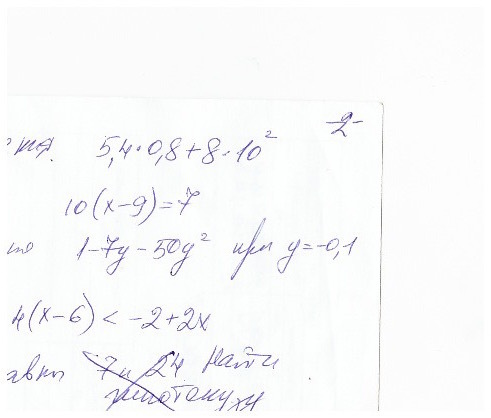 -2-
5,4·0,8+8·10²
10(x-9)=7
1-7y-50y² при y=-0,1
4(x-6) < -2+2x
7 и 24 Найти
гипотенузу